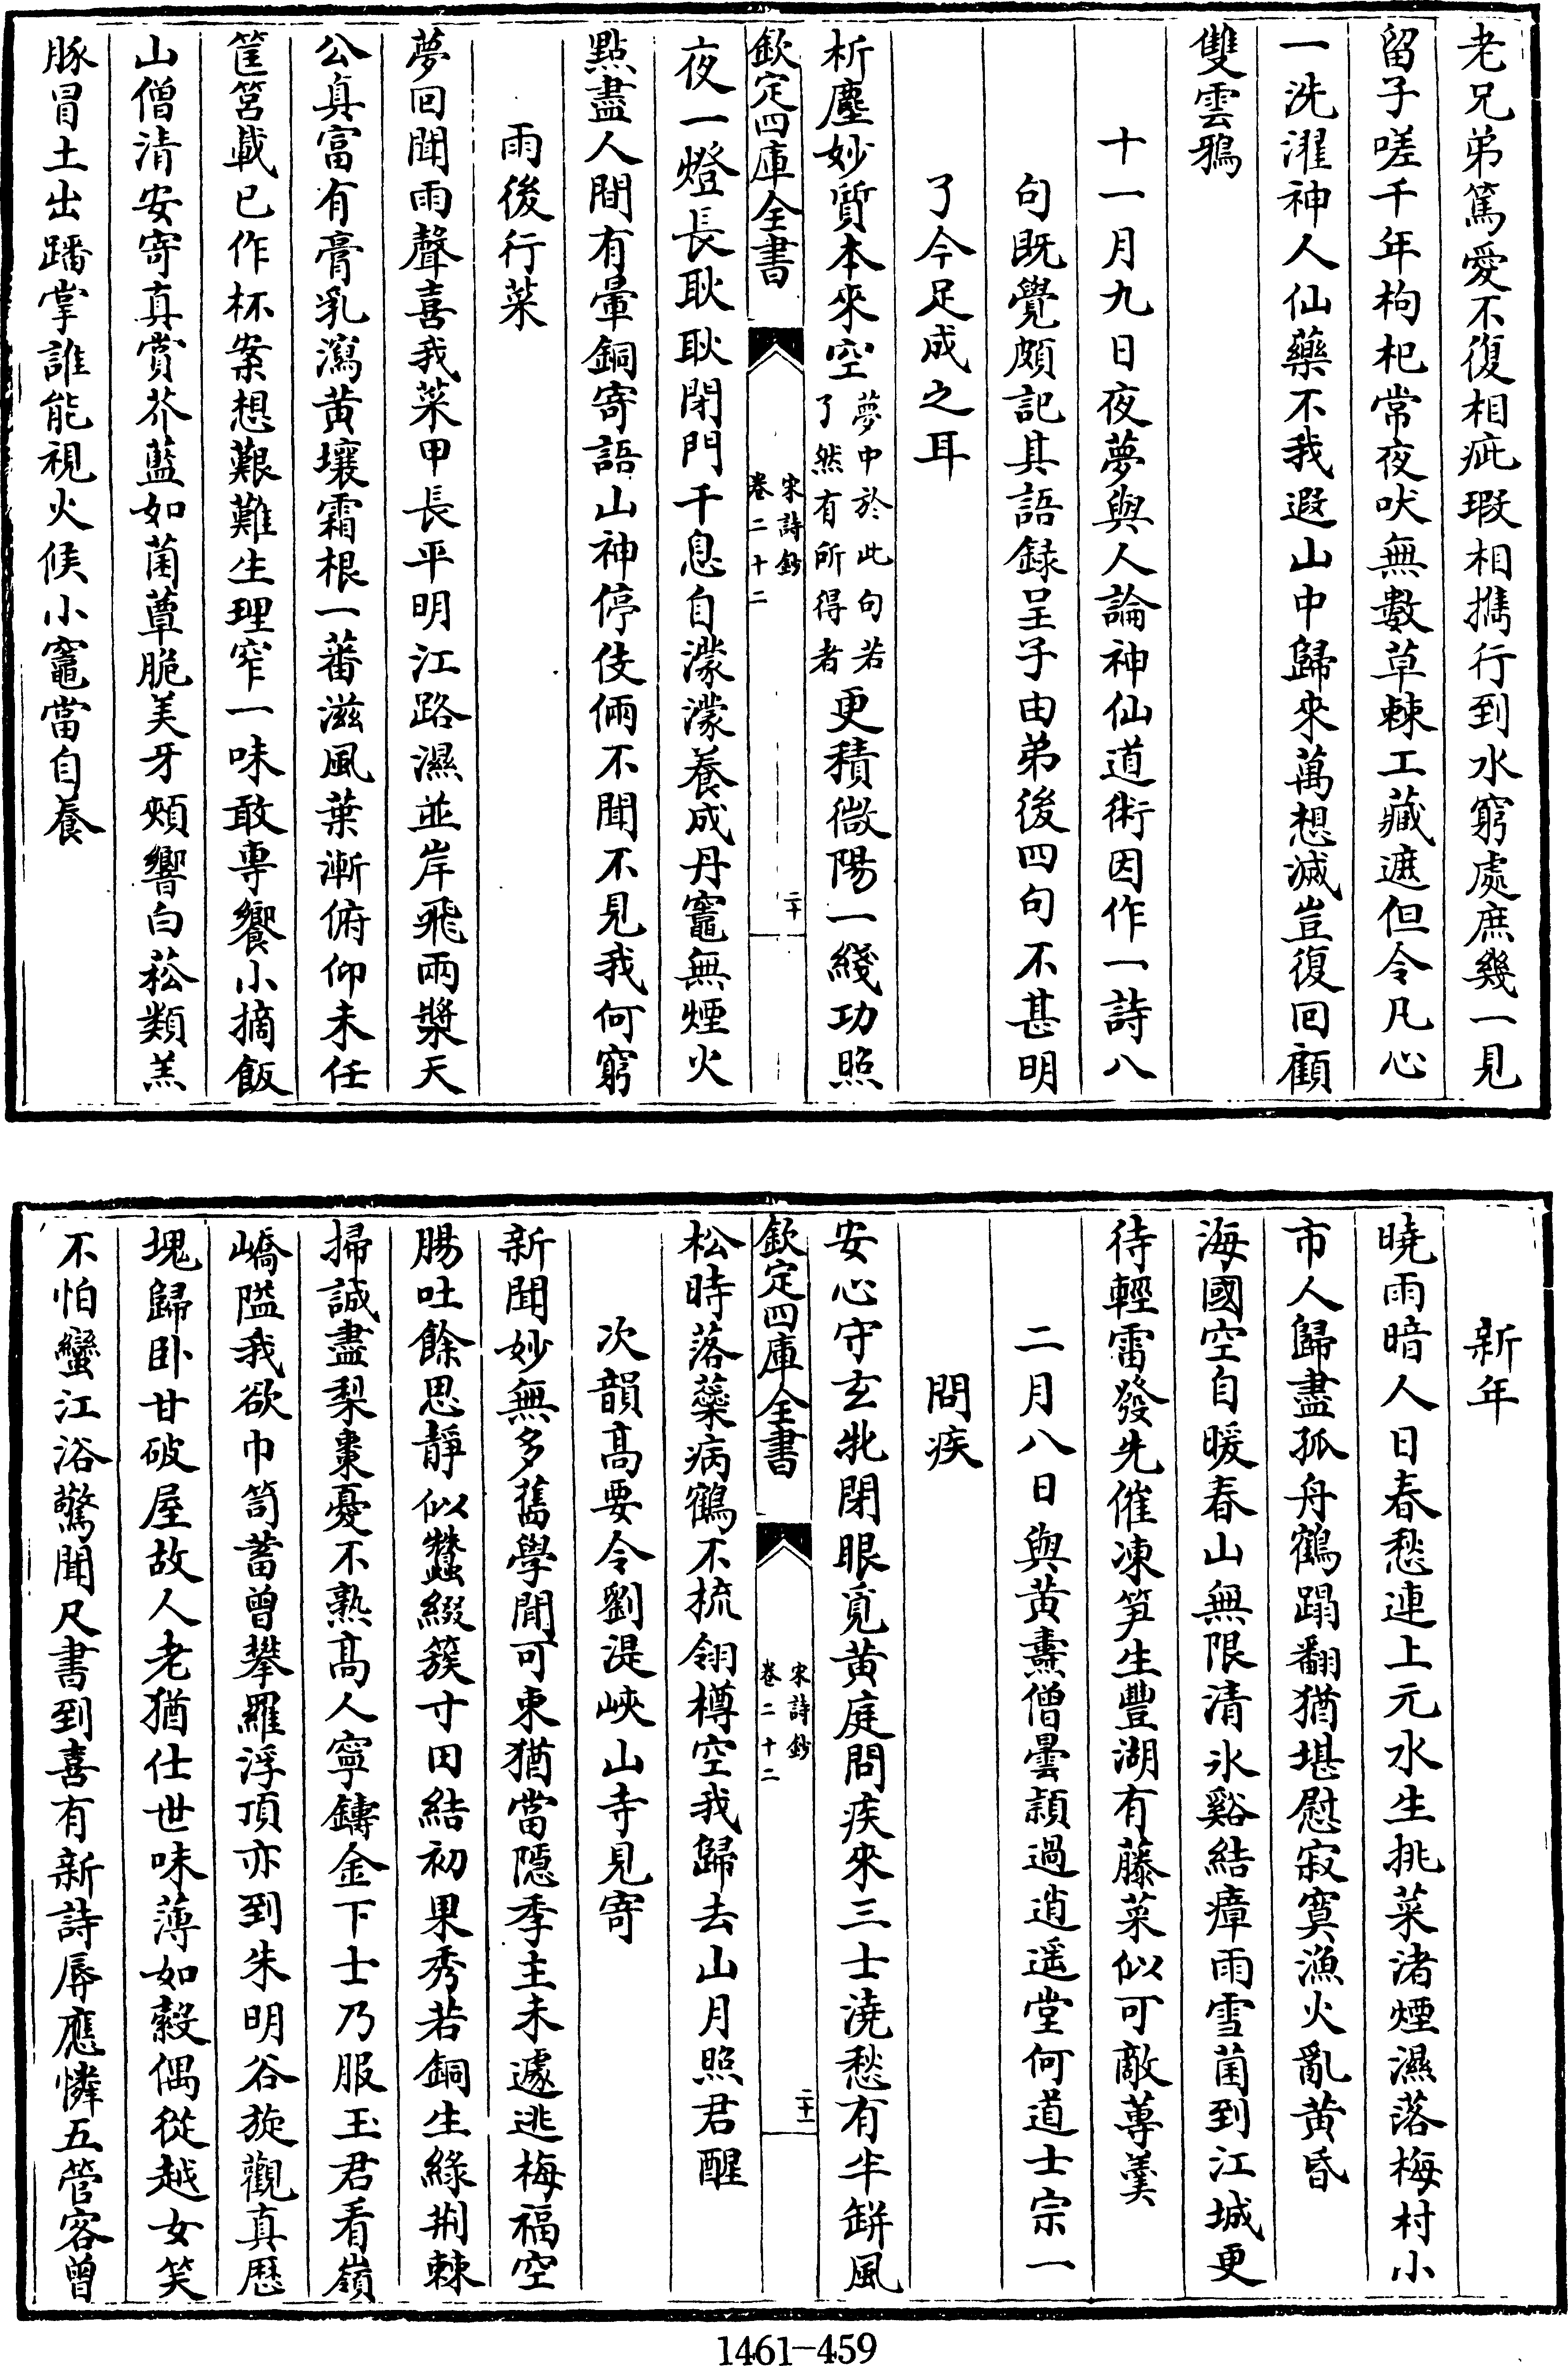 老兄弟篤愛不復相疵瑕相攜行到水窮處庶幾一見
留子嗟千年枸杞常夜吠無數草棘工藏遮但令凡心
一洗濯神人仙藥不我遐山中歸來萬想滅豈復回顧
雙雲鴉
十一月九日夜夢與人論神仙道術因作一詩八
句既覺頗記其語録呈子由弟後四句不甚明
了今足成之耳
析塵妙質本來空夢中於此句若了然有所得者更積微陽一綫功照
欽定四庫全書
宋詩鈔
卷二十二
二十
夜一燈長耿耿閉門千息自濛濛養成丹竈無煙火
點盡人間有暈銅寄語山神停伎倆不聞不見我何窮
雨後行菜
夢回聞雨聲喜我菜甲長平明江路濕並岸飛兩槳天
公真富有膏乳瀉黄壤霜根一蕃滋風葉漸俯仰未任
筐筥載已作杯案想艱難生理窄一味敢專饗小摘飯
山僧清安寄真賞芥藍如菌蕈脆美牙頰響白菘類羔
豚冒土出蹯掌誰能視火候小竈當自養
新年
曉雨暗人日春愁連上元水生挑菜渚煙濕落梅村小
市人歸盡孤舟鶴蹋翻猶堪慰寂寞漁火亂黄昏
海國空自暖春山無限清氷谿結瘴雨雪菌到江城更
待輕雷發先催凍笋生豐湖有藤菜似可敵蓴羹
二月八日與黄燾僧曇頴過逍遥堂何道士宗一
問疾
安心守玄牝閉眼覓黄庭問疾來三士澆愁有半缾風
欽定四庫全書
宋詩鈔
卷二十二
二十一
松時落蘂病鶴不梳翎樽空我歸去山月照君醒
次韻髙要令劉湜峽山寺見寄
新聞妙無多舊學閒可束猶當隱季主未遽逃梅福空
腸吐餘思靜似蠶綴簇寸田結初果秀若銅生綠荆棘
掃誠盡棃棗憂不熟髙人寧鑄金下士乃服玉君看嶺
嶠隘我欲巾笥蓄曾攀羅浮頂亦到朱明谷旋觀真歷
塊歸卧甘破屋故人老猶仕世味薄如縠偶從越女笑
不怕蠻江浴驚聞尺書到喜有新詩辱應憐五管客曾
1461-459